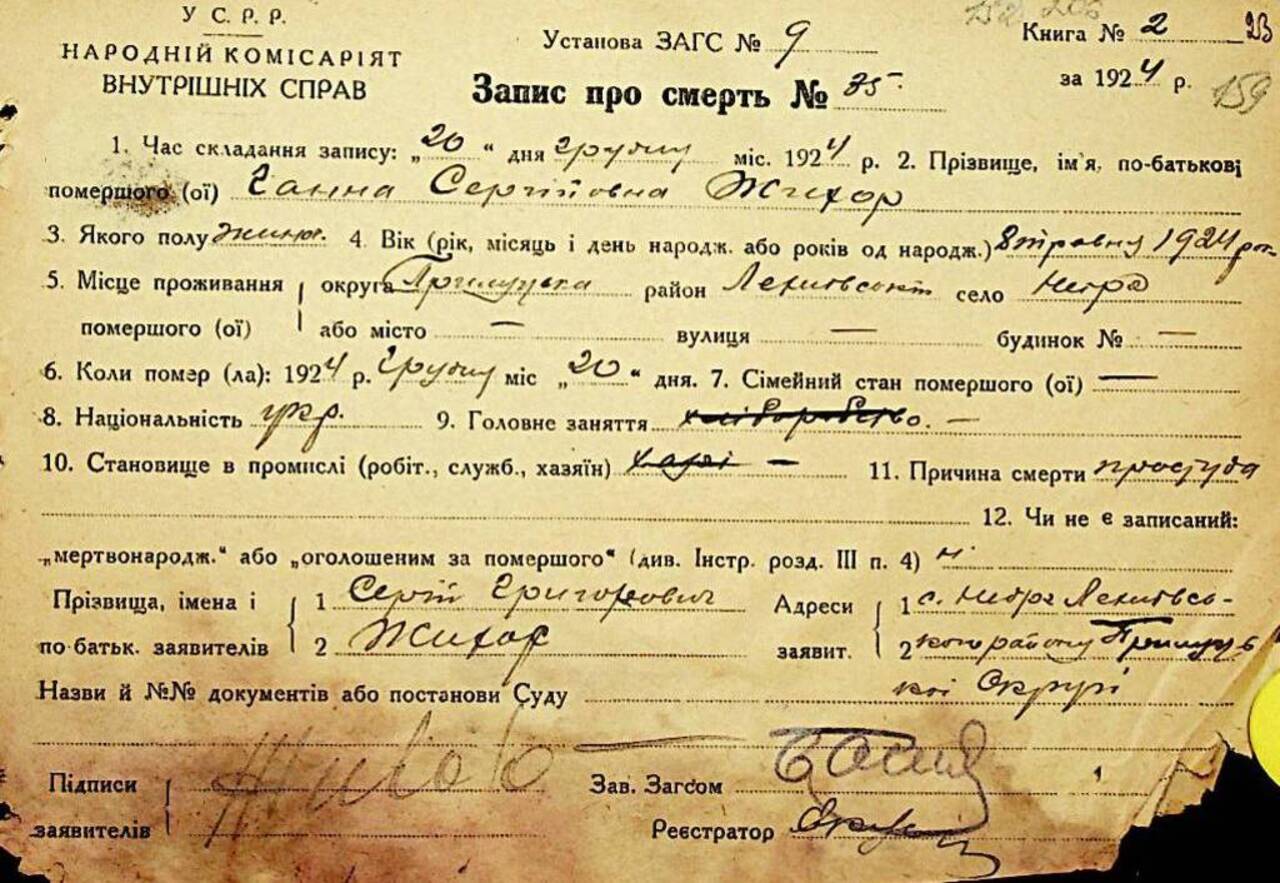 У С. Р. Р.
НАРОДНІЙ КОМІСАРІЯТ
ВНУТРІШНІХ СПРАВ
Установа ЗАГС № 9
Книга № 2 23
за 1924 р. 159
Запис про смерть № 35
1. Час складання запису: „20“ дня грудня міс. 1924 р. 2. Прізвище, ім'я, по-батькові
помершого (ої) Ганна Сергіївна Жихор
3. Якого полу жіноч. 4. Вік (рік, місяць і день народж. або років од народж.) 8 травня 1924 рок
5. Місце проживання округа Прилуцька район село
помершого (ої) або місто — вулиця — будинок № —
6. Коли помер (ла): 1924 р. Грудня міс „20“ дня. 7. Сімейний стан помершого (ої) —
8. Національність укр. 9. Головне заняття хліборобство. —
10. Становище в промислі (робіт., служб., хазяїн) хазяї — 11. Причина смерти простуда
12. Чи не є записаний:
„мертвонародж.“ або „оголошеним за помершого“ (див. Інстр. розд. III п. 4) ні
Прізвища, імена і 1 Сергій Григорович Адреси 1 с.
по батьк. заявителів 2 Жихор заявит. 2 кого району Прилуць
Назви й №№ документів або постанови Суду кої Округи
Підписи Зав. Загсом
заявителів Реєстратор